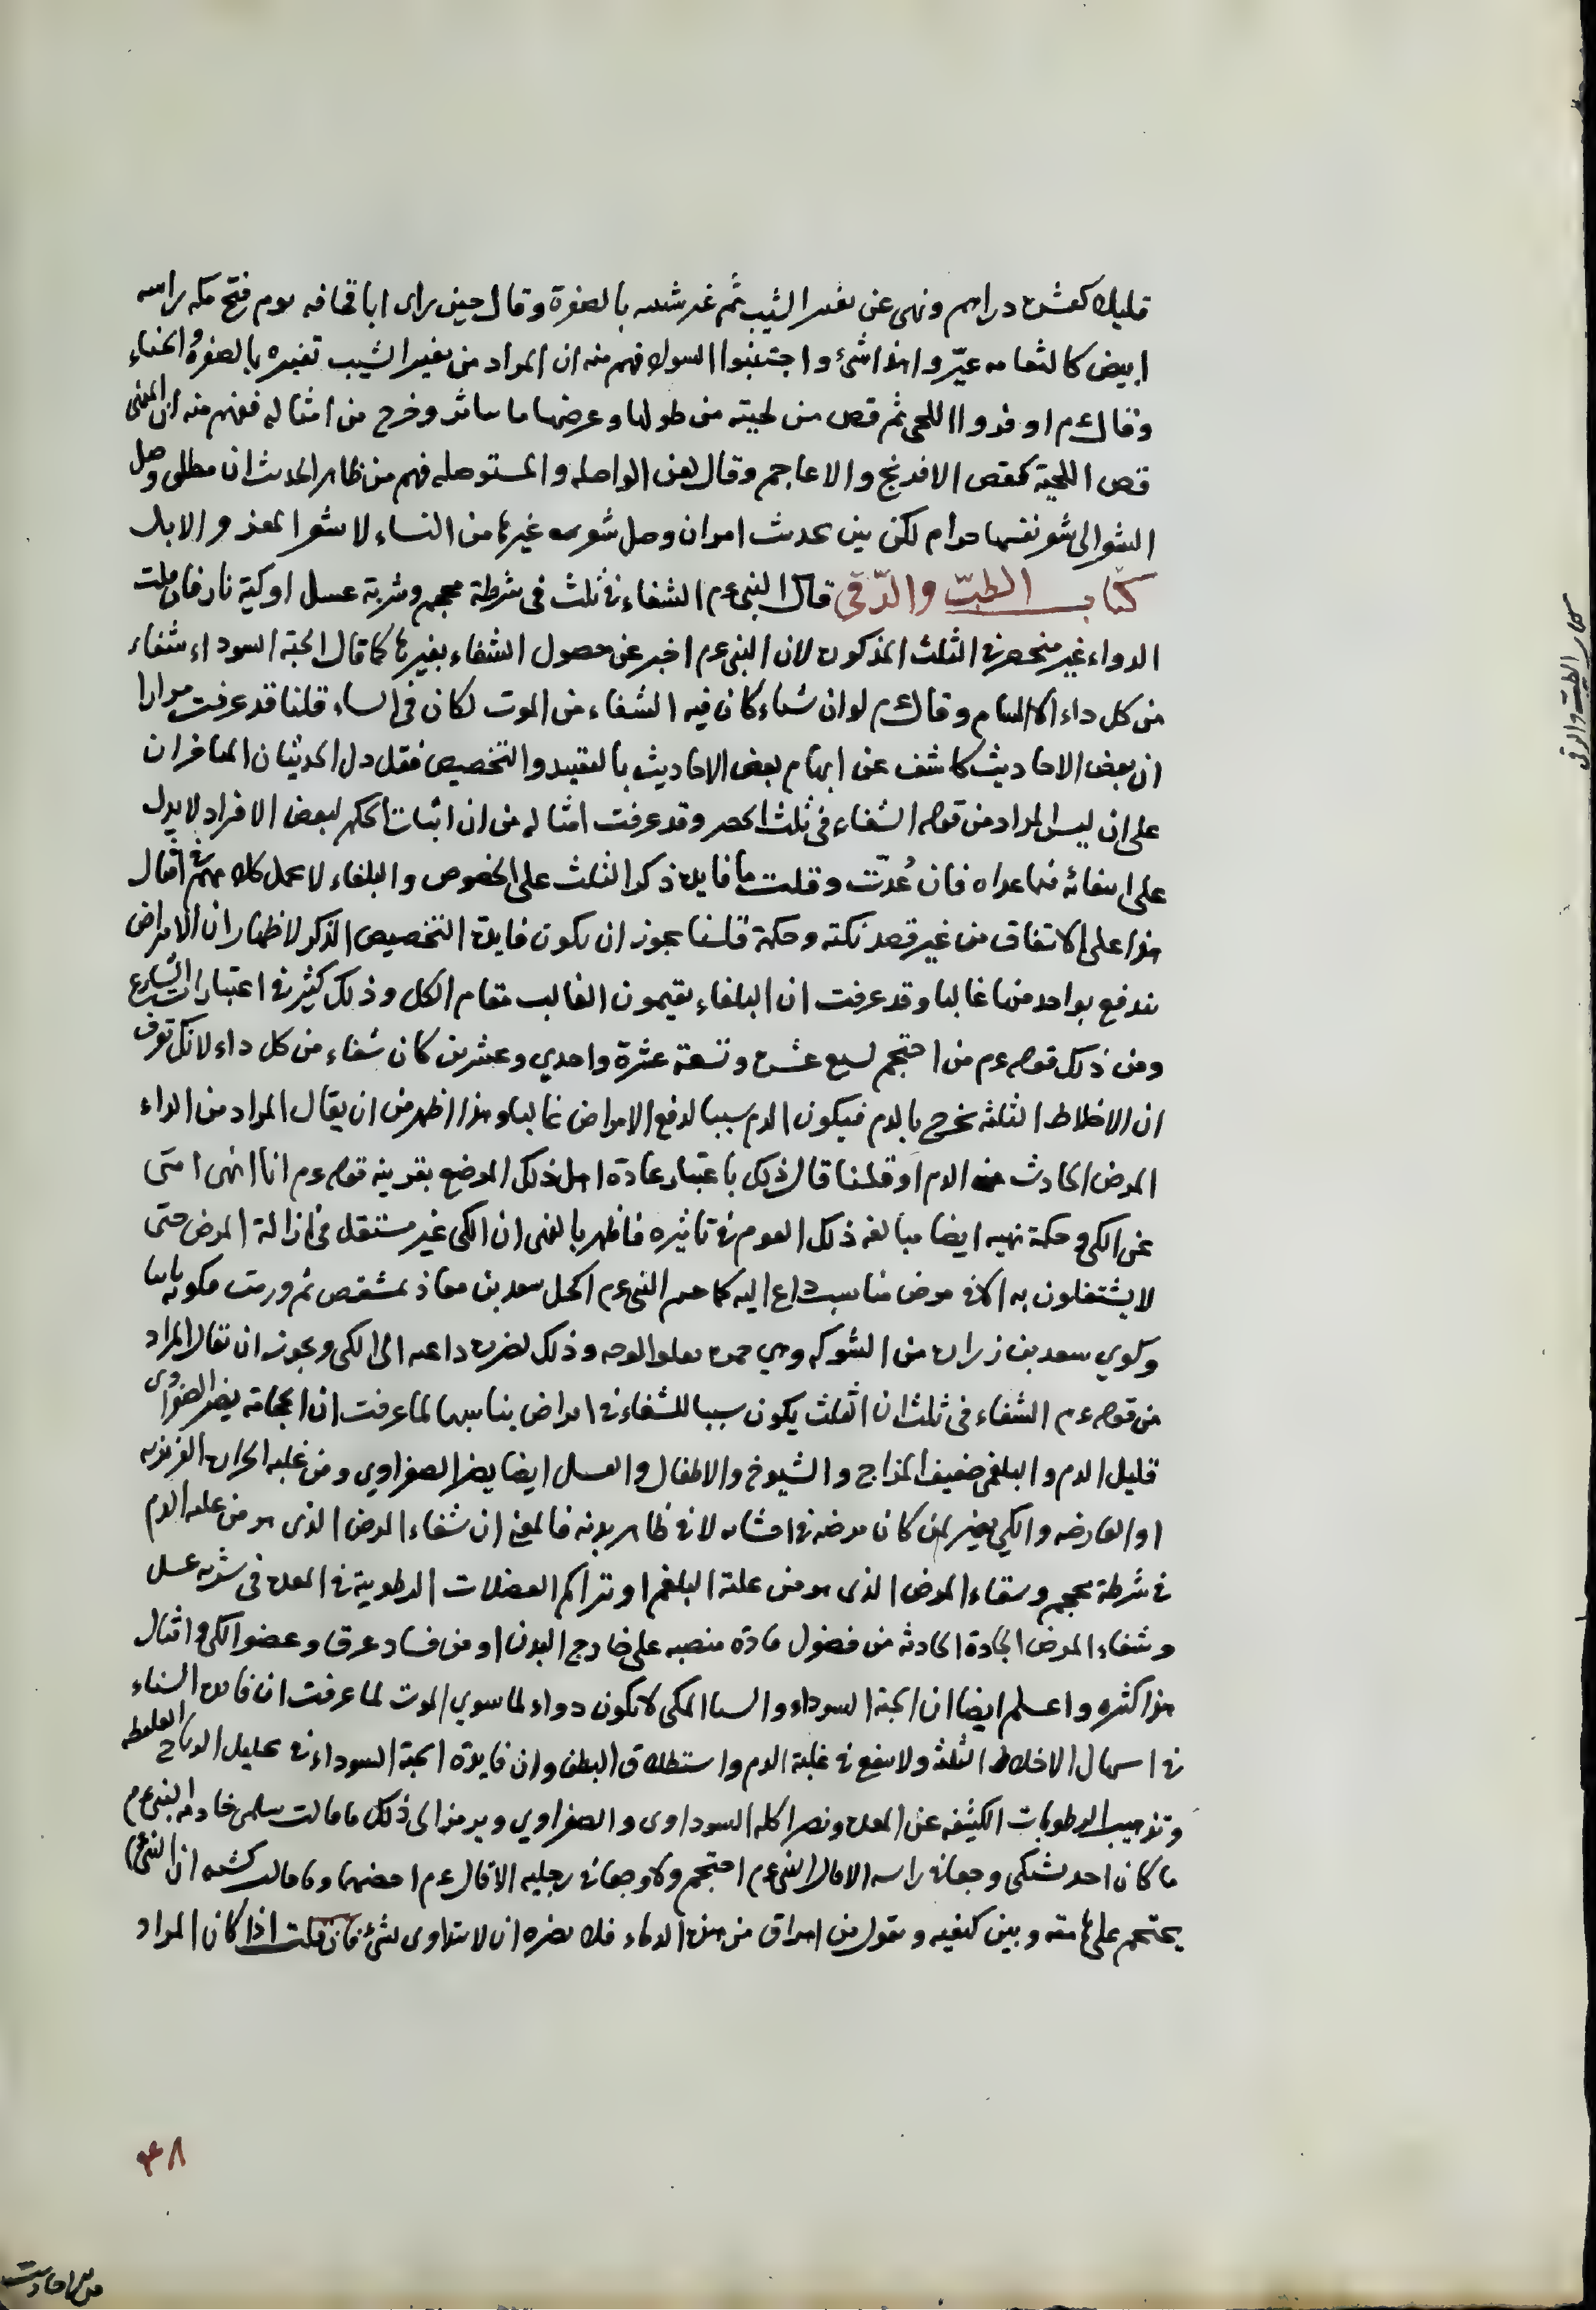 قليلة كعشرة دراهم ونهى عن تغيير الشيب ثم غير شيبه بالصفرة وقال حين راى ابا قحافه يوم فتح مكه راسه
ابيض كالثغامه غيّروا هذا بشئ واجتنبوا السواد فهم منه ان المراد من تغيير الشيب تغييره بالصفرة والحناء
وقال ءم اوفروا اللحى ثم قص من لحيته من طولها وعرضها وخرج من امثاله ففهم منه ان المنهى
قص اللحية كقص الافرنج والاعاجم وقال لعن الواصله والمستوصله فهم من ظاهر الحديث ان مطلق وصل
الشعر الى شعر نفسها حرام لكن بين بحديث اخر ان وصل شعر غيرها من النساء لا شعر المعز والابل
كتاب الطبّ والرّقى قال النبى ءم الشفاء فى ثلث فى شرطة محجم وشربة عسل او كية نار فان قلت
الدواء غير منحصر فى الثلث المذكورة لان النبى ءم اخبر عن حصول الشفاء بغيرها كما قال الحبة السوداء شفاء
من كل داء الا السام وقال ءم لو ان شياء كان فيه الشفاء من الموت لكان فى السناء قلنا قد عرفت مرارا
ان بعض الاحاديث كاشف عن ابهام بعض الاحاديث بالتقييد والتخصيص فقل دل الحديثان المتاخران
على ان ليس المراد من قوله الشفاء فى ثلث الحصر وقد عرفت امثاله من ان اثبات الحكم لبعض الافراد لا يدل
على انتفائه فيما عداه فان عُدتَ وقلت ما فايدة ذكر الثلث على الخصوص والبلغاء لا يحمل كلامهم فى امثال
هذا على الاتفاق من غير قصد نكتة وحكمة قلنا يجوز ان يكون فايدة التخصيص الذكر لاظهار ان الامراض
تندفع بواحد منها غالبا وقد عرفت ان البلغاء يقيمون الغالب مقام الكل وذلك كثير فى اعتبارات الشارع
ومن ذلك قوله ءم من احتجم لسبع عشرة وتسعة عشرة واحدي وعشرين كان شفاء من كل داء لانك تعرف
ان الاخلاط الثلثة تخرج بالدم فيكون الدم سببا لدفع الامراض غالبا وهذا اظهر من ان يقال المراد من الداء
المرض الحادث من الدم او قلنا قال ذلك باعتبار عادة اهل ذلك الموضع بقرينة قوله ءم انا انهى امتى
عن الكى وحكمة نهيه ايضا مبالغة ذلك القوم فى تاثيره فاظهر بالنهى ان الكى غير مستقل فى ازالة المرض حتى
لا يشتغلون به الا فى مرض مناسب داع اليه كما حسم النبى ءم اكحل سعد بن معاذ بمشقص ثم ورمت فكويه ثانيا
وكوي سعد بن زرارة من الشوكه وهي حمرة تعلوا الوجه وذلك لضرورة داعية الى الكى ويجوز ان يقال المراد
من قوله ءم الشفاء فى ثلث ان الثلث يكون سببا للشفاء فى امراض يناسبها لما عرفت ان الحجامة يضر الصفراوى
قليل الدم والبلغمى ضعيف المزاج والشيوخ والاطفال والعسل ايضا يضر الصفراوي ومن غلبه الحرارة الغريزيه
او العارضه والكي يضر لمن كان مرضه فى احشائه لا فى ظاهر بدنه فالمعنى ان شفاء المرض الذى هو من غلبة الدم
فى شرطة محجم وشفاء المرض الذى هو من غلبة البلغم او تراكم الفضلات الرطوبية فى المعدة فى شربه عسل
وشفاء المرض الحادة الحادثه من فضول مادة منصبه على خارج البدن او من فساد عرق وعضو الكى وامثال
هذا كثيره واعلم ايضا ان الحبة السوداء والسنا المكى لا يكون دواء لما سوي الموت لما عرفت ان فايدة السناء
فى اسهال الاخلاط الثلثة ولا ينفع فى غلبة الدم واستطلاق البطن وان فايدة الحبة السوداء فى تحليل الرياح الغليظه
وتذهيب الرطوبات الكثيفه عن المعدة ويضر اكله السوداوى والصفراوي ويرمز الى ذلك ما قالت سلمى خادمة النبى ءم
ما كان احد يشتكى وجعا فى راسه الا قال النبى ءم احتجم ولا وجعا فى رجليه الا قال ءم اخضبهما وما قالت كبشه ان النبى ءم
يحتجم على هامته وبين كتفيه ويقول من اهراق من هذه الدماء فلا يضره ان لا يتداوى لشئ فان قلت اذا كان المراد
كتاب الطب والرقى
٤٨